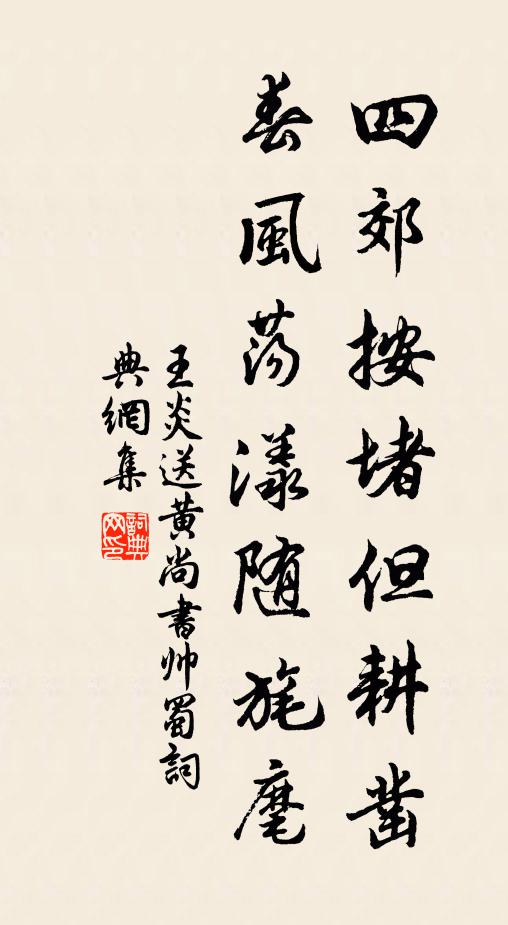 四郊按堵但耕凿
春風荡漾随旄麾
王炎送黄尚書帅蜀詞
典網集
詞典网印